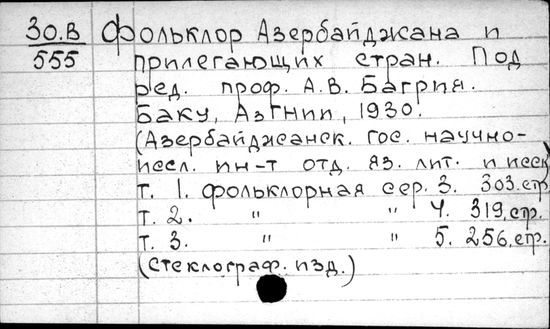 30.В Фольклор Азербайджана и
555 прилегающих стран. Под
ред. проф. А.В. Багрия.
Баку, АзГНИИ, 1930.
(Азербайджанск. гос. научно-
иссл. ин-т отд. яз. лит. и иск)
т. 1. фольклорная сер. 3. 303.стр
т. 2. " " 4. 319.стр.
т. 3. " " 5. 256.стр.
(Стеклограф. изд.)